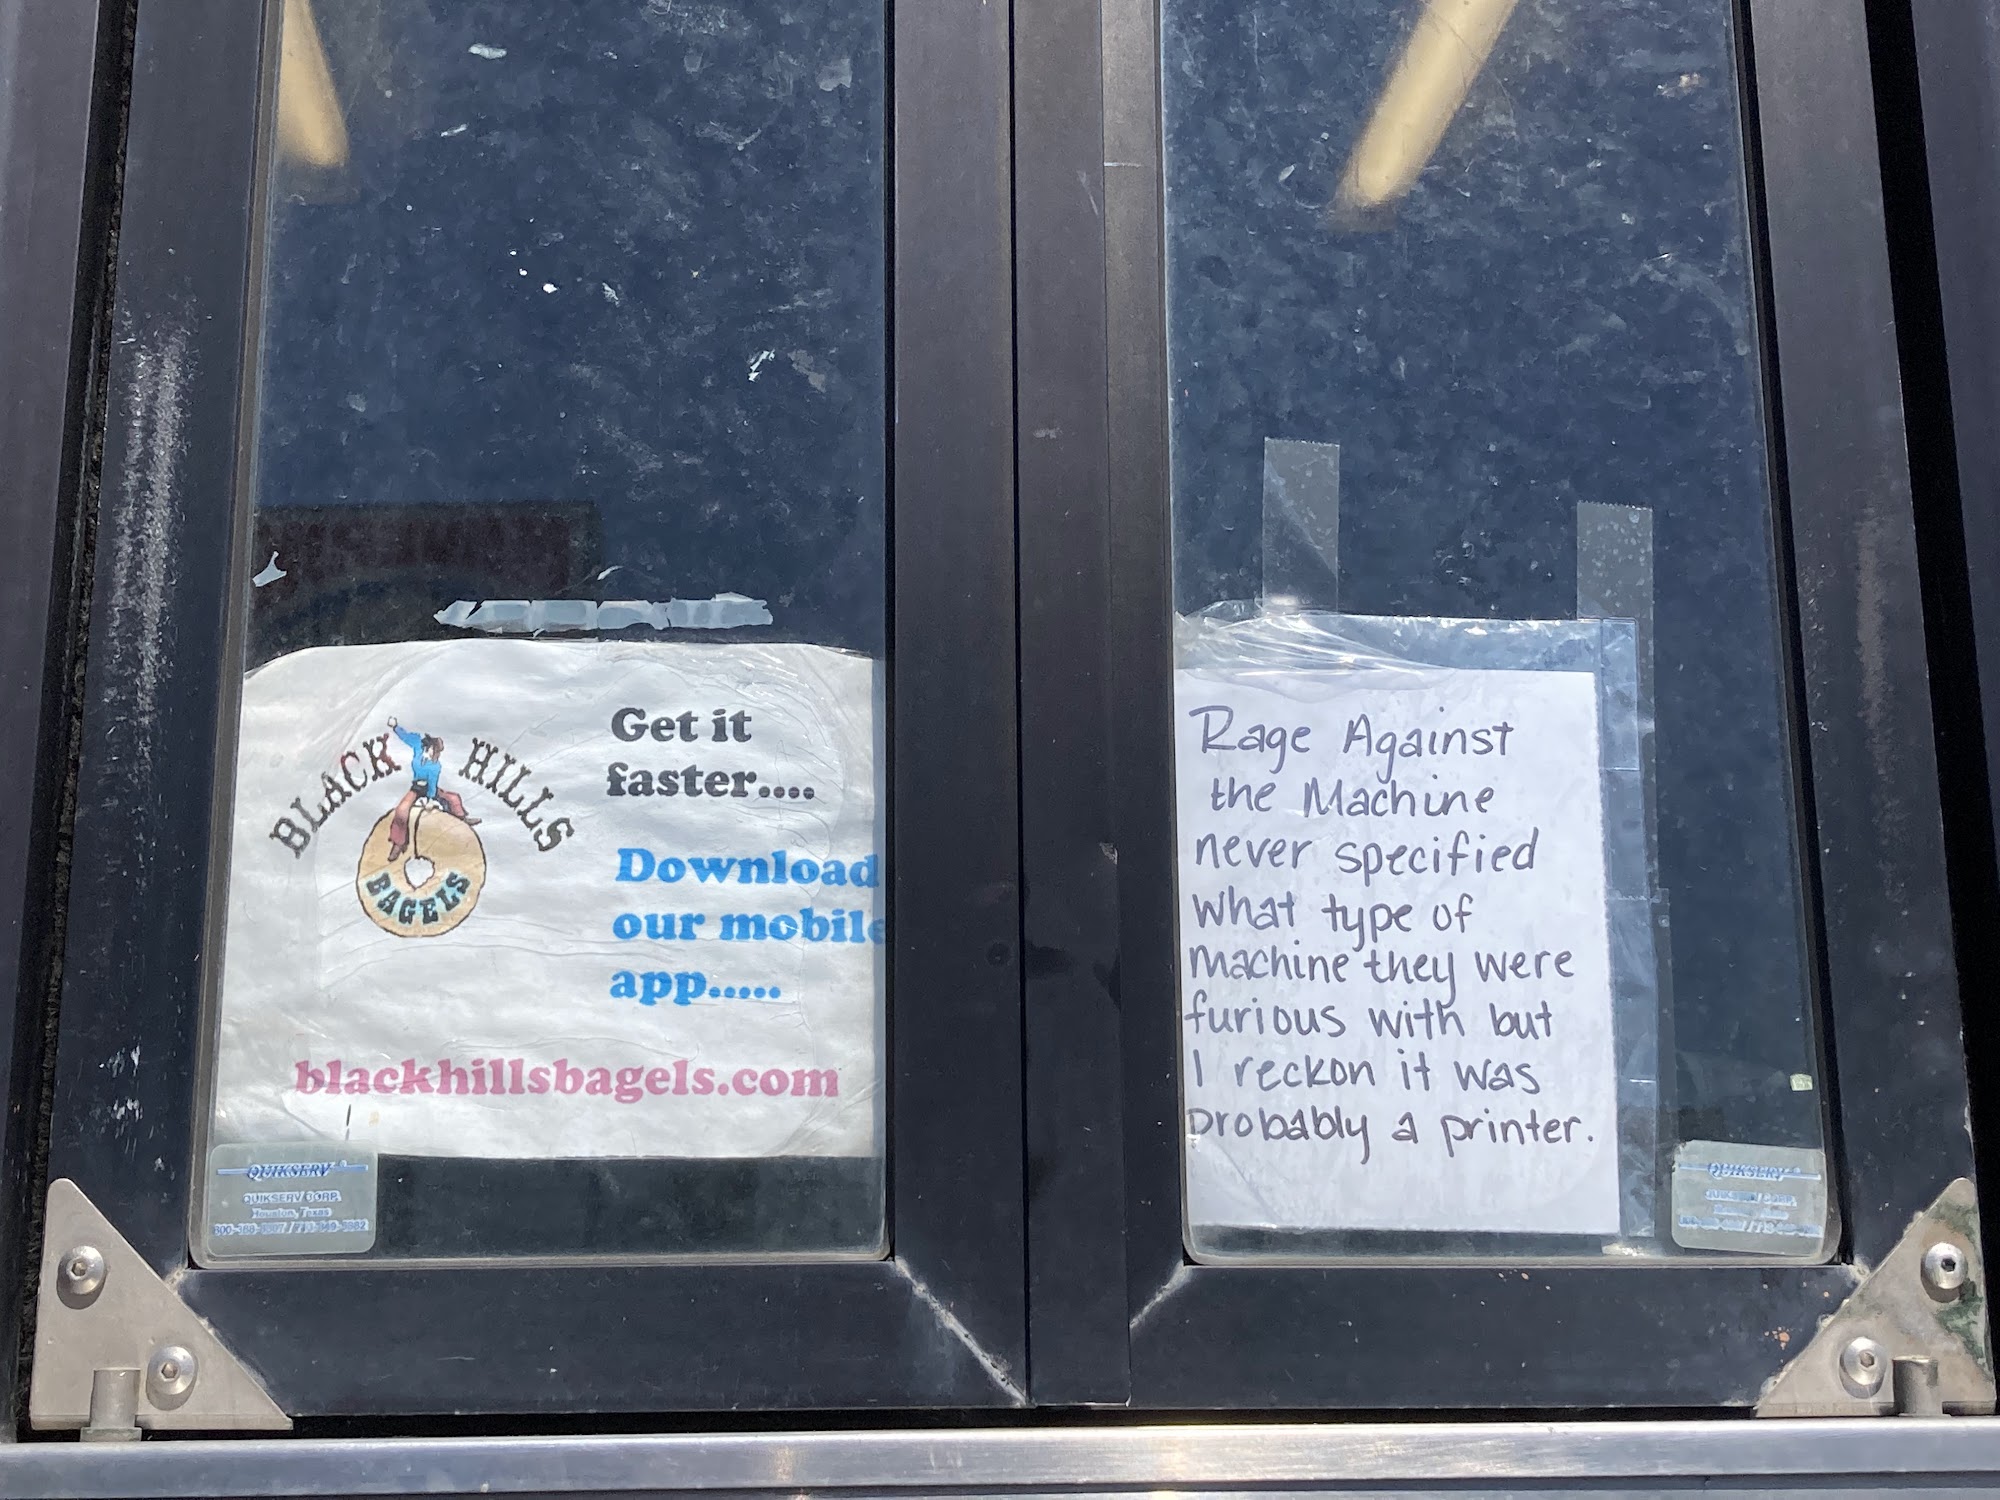 BLACK HILLS
BAGELS
Get it
faster....
Download
our mobile
app.....
blackhillsbagels.com
QUIKSERV
QUIKSERV CORP.
Houston, Texas
Rage Against
the Machine
never specified
what type of
machine they were
furious with but
I reckon it was
probably a printer.
QUIKSERV